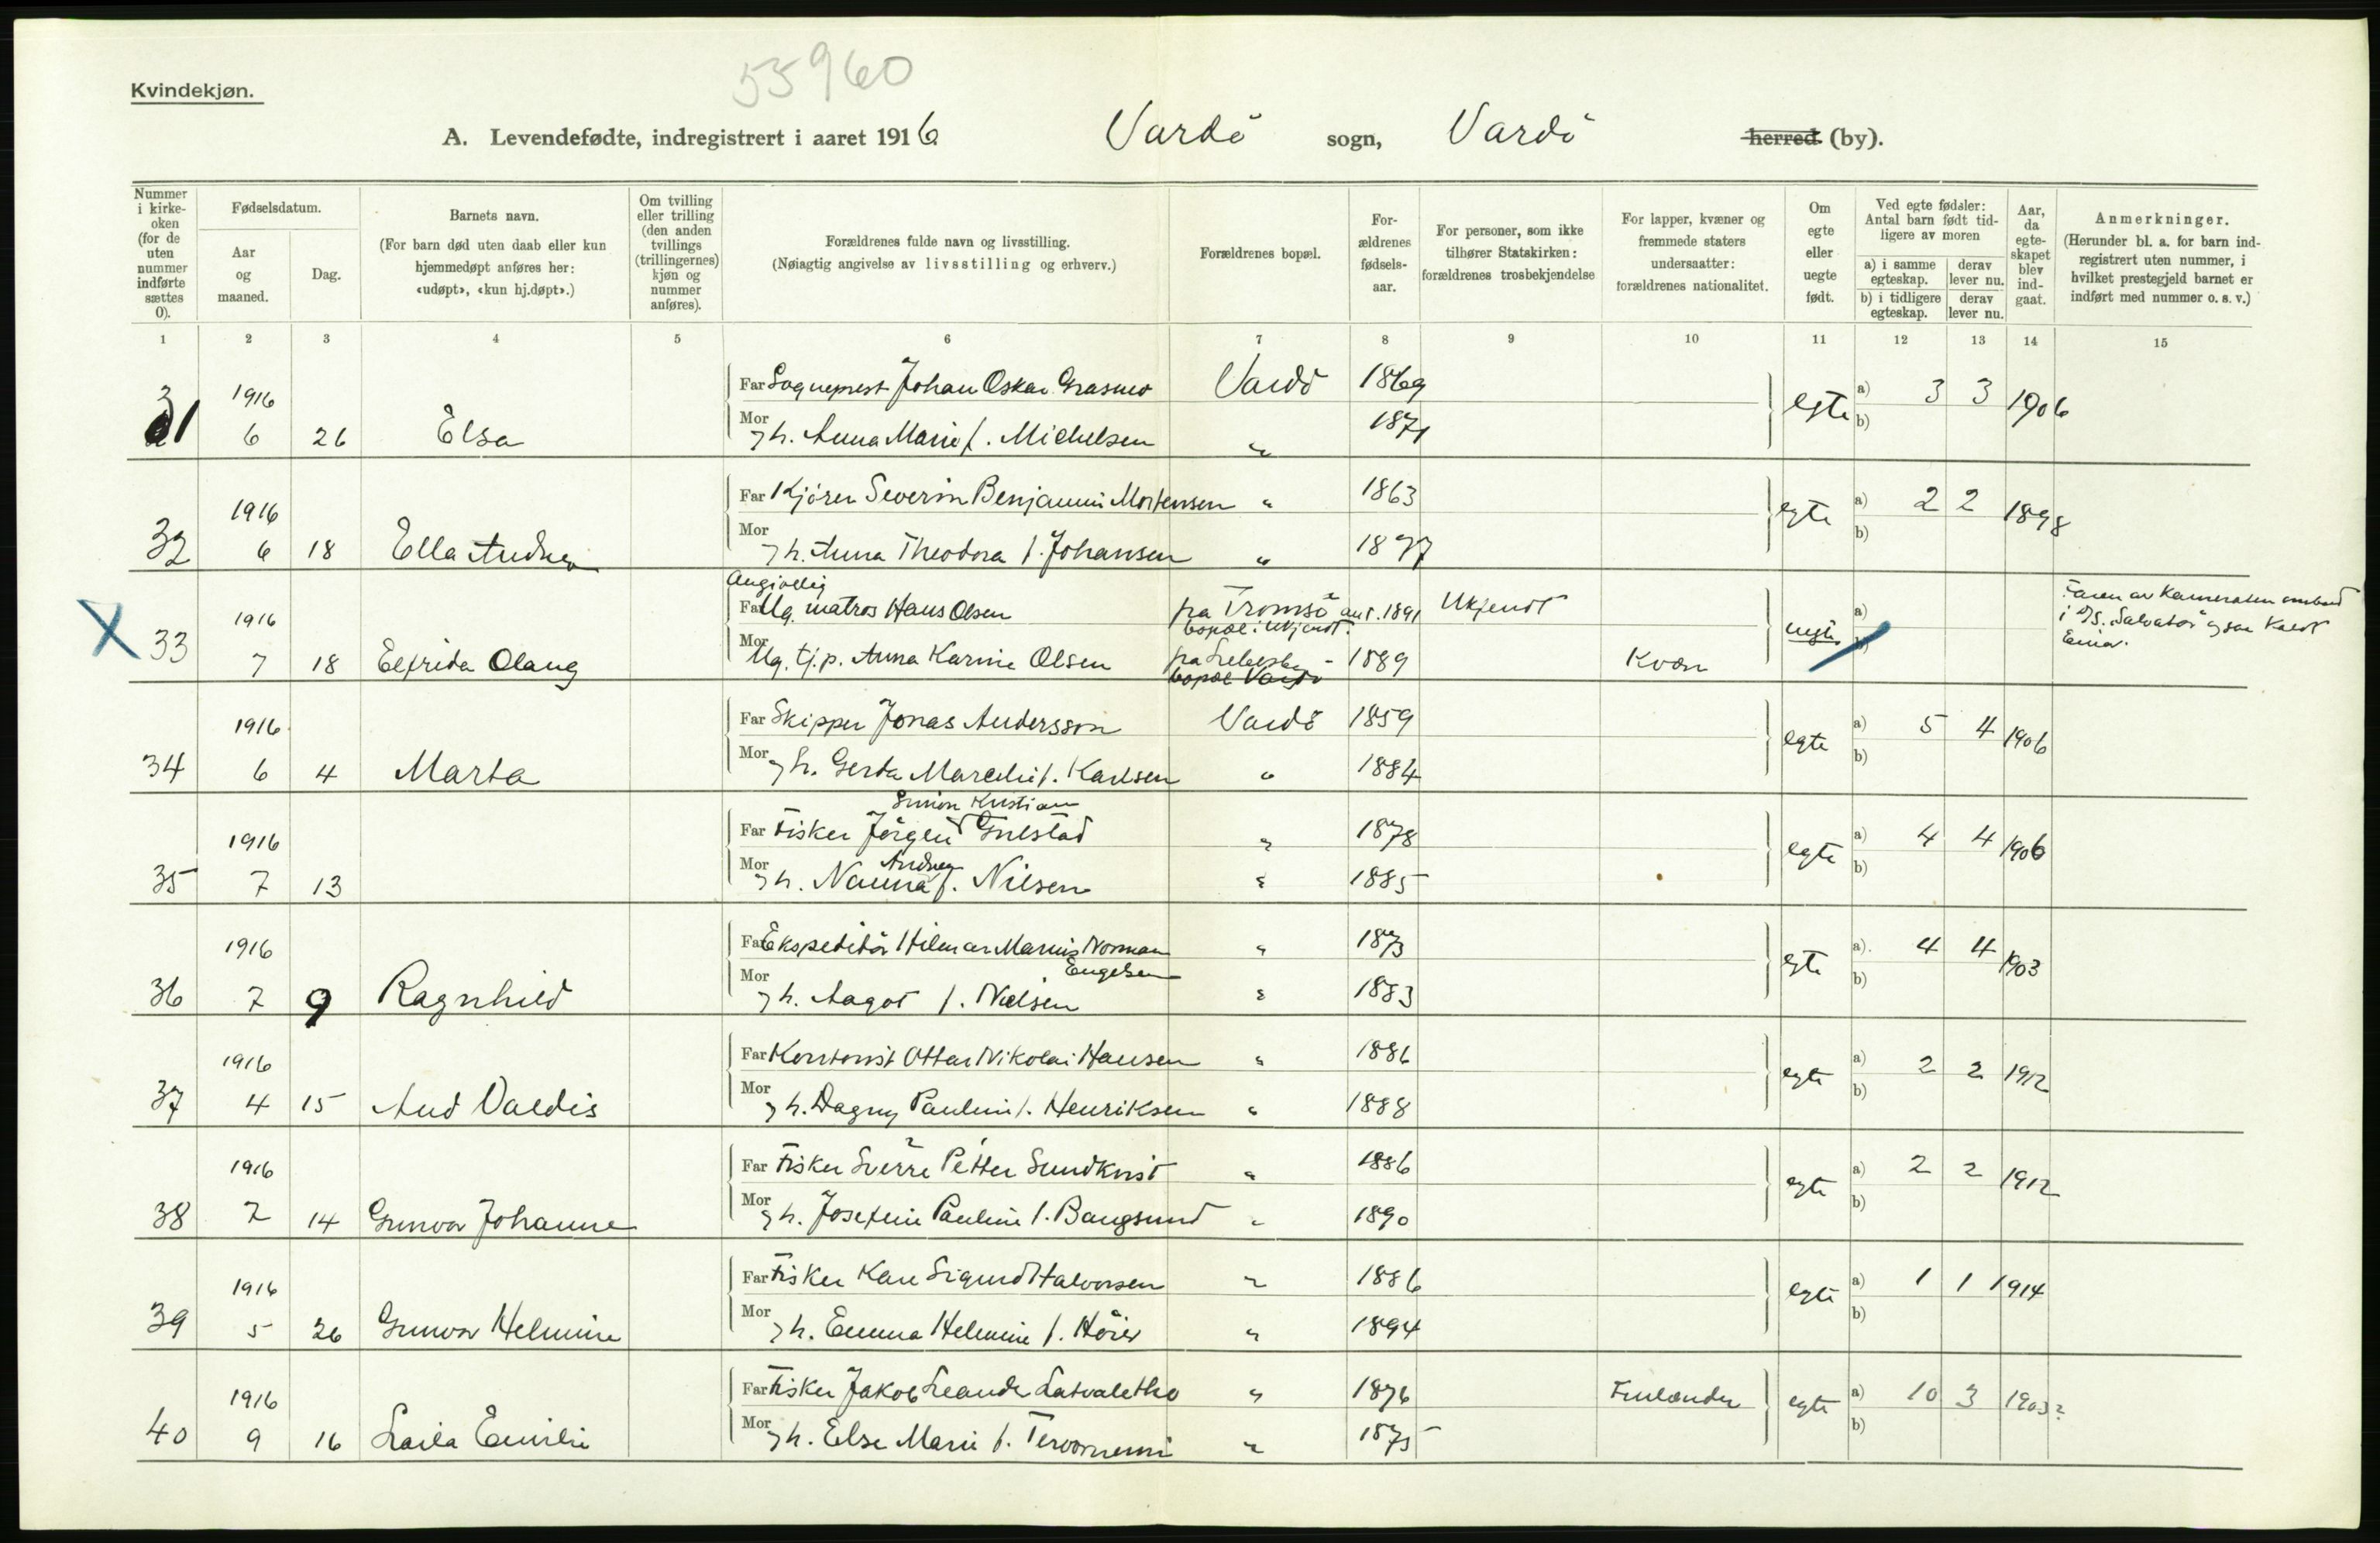 55960
Kvindekjøn.
A. Levendefødte, indregistrert i aaret 1916 Vardö sogn, Vardö herred (by).
Nummer i kirke-oken (for de uten nummer indførte sættes 0).
Fødselsdatum.
Aar og maaned.
Dag.
Barnets navn.
(For barn død uten daab eller kun hjemmedøpt anføres her: «udøpt», «kun hj.døpt».)
Om tvilling eller trilling (den anden tvillings (trillingernes) kjøn og nummer anføres).
Forældrenes fulde navn og livsstilling.
(Nøiagtig angivelse av livsstilling og erhverv.)
Forældrenes bopæl.
For-ældrenes fødsels-aar.
For personer, som ikke tilhører Statskirken: forældrenes trosbekjendelse
For lapper, kvæner og fremmede staters undersaatter: forældrenes nationalitet.
Om egte eller uegte født.
Ved egte fødsler: Antal barn født tid-ligere av moren
a) i samme egteskap.
derav lever nu.
b) i tidligere egteskap.
derav lever nu.
Aar, da egte-skapet blev ind-gaat.
Anmerkninger.
(Herunder bl. a. for barn ind-registrert uten nummer, i hvilket prestegjeld barnet er indført med nummer o. s. v.)
1 2 3 4 5 6 7 8 9 10 11 12 13 14 15
Far Sogneprest Johan Oskar Grasmo Vardö 1869
31 1916 6 26 Elsa egte a) 3 3 1906 b)
Mor h. Anna Marie f. Michelsen " 1871
Far Kjörer Severin Benjamin Mortensen " 1863
32 1916 6 18 Ella Andrea egte a) 2 2 1898 b)
Mor h. Anna Theodora f. Johansen " 1877
Angivelig
Far Ug. matros Hans Olsen fra Tromsö ant. 1891 Ukjendt
bopæl: Ukjendt.
X 33 1916 7 18 Elfrida Olaug uegte a) b)
Mor Ug. tj.p. Anna Karine Olsen fra Lebesby - 1889 Kvæn
bopæl Vardö
Faren av Kameraten ombord
i D/S. "Salvator" ogsaa Kaldt
Einar.
Far Skipper Jonas Andersson Vardö 1859
34 1916 6 4 Marta egte a) 5 4 1906 b)
Mor h. Gerda Marcelie f. Karlsen " 1884
Simon Kristian
Far Fisker Jörgen Gulstad " 1878
35 1916 7 13 egte a) 4 4 1906 b)
Andrea
Mor h. Nanna f. Nilsen " 1885
Far Ekspeditör Hilmar Marius Norman " 1873
Engelsen
36 1916 7 9 Ragnhild egte a) 4 4 1903 b)
Mor h. Aagot f. Nielsen " 1883
Far Kontorist Ottar Nikolai Hansen " 1886
37 1916 4 15 Aud Valdis egte a) 2 2 1912 b)
Mor h. Dagny Pauline f. Henriksen " 1888
Far Fisker Sverre Petter Sundkvist " 1886
38 1916 7 14 Gunvor Johanne egte a) 2 2 1912 b)
Mor h. Josefine Pauline f. Bangsund " 1890
Far Fisker Kare Sigurd Halvorsen " 1886
39 1916 5 26 Gunvor Helmine egte a) 1 1 1914 b)
Mor h. Emma Helmine f. " 1894
Far Fisker Jakob Leander " 1876 Finlænder
40 1916 9 16 Laila Emilie egte a) 10 3 1903? b)
Mor h. Else Marie f. " 1875